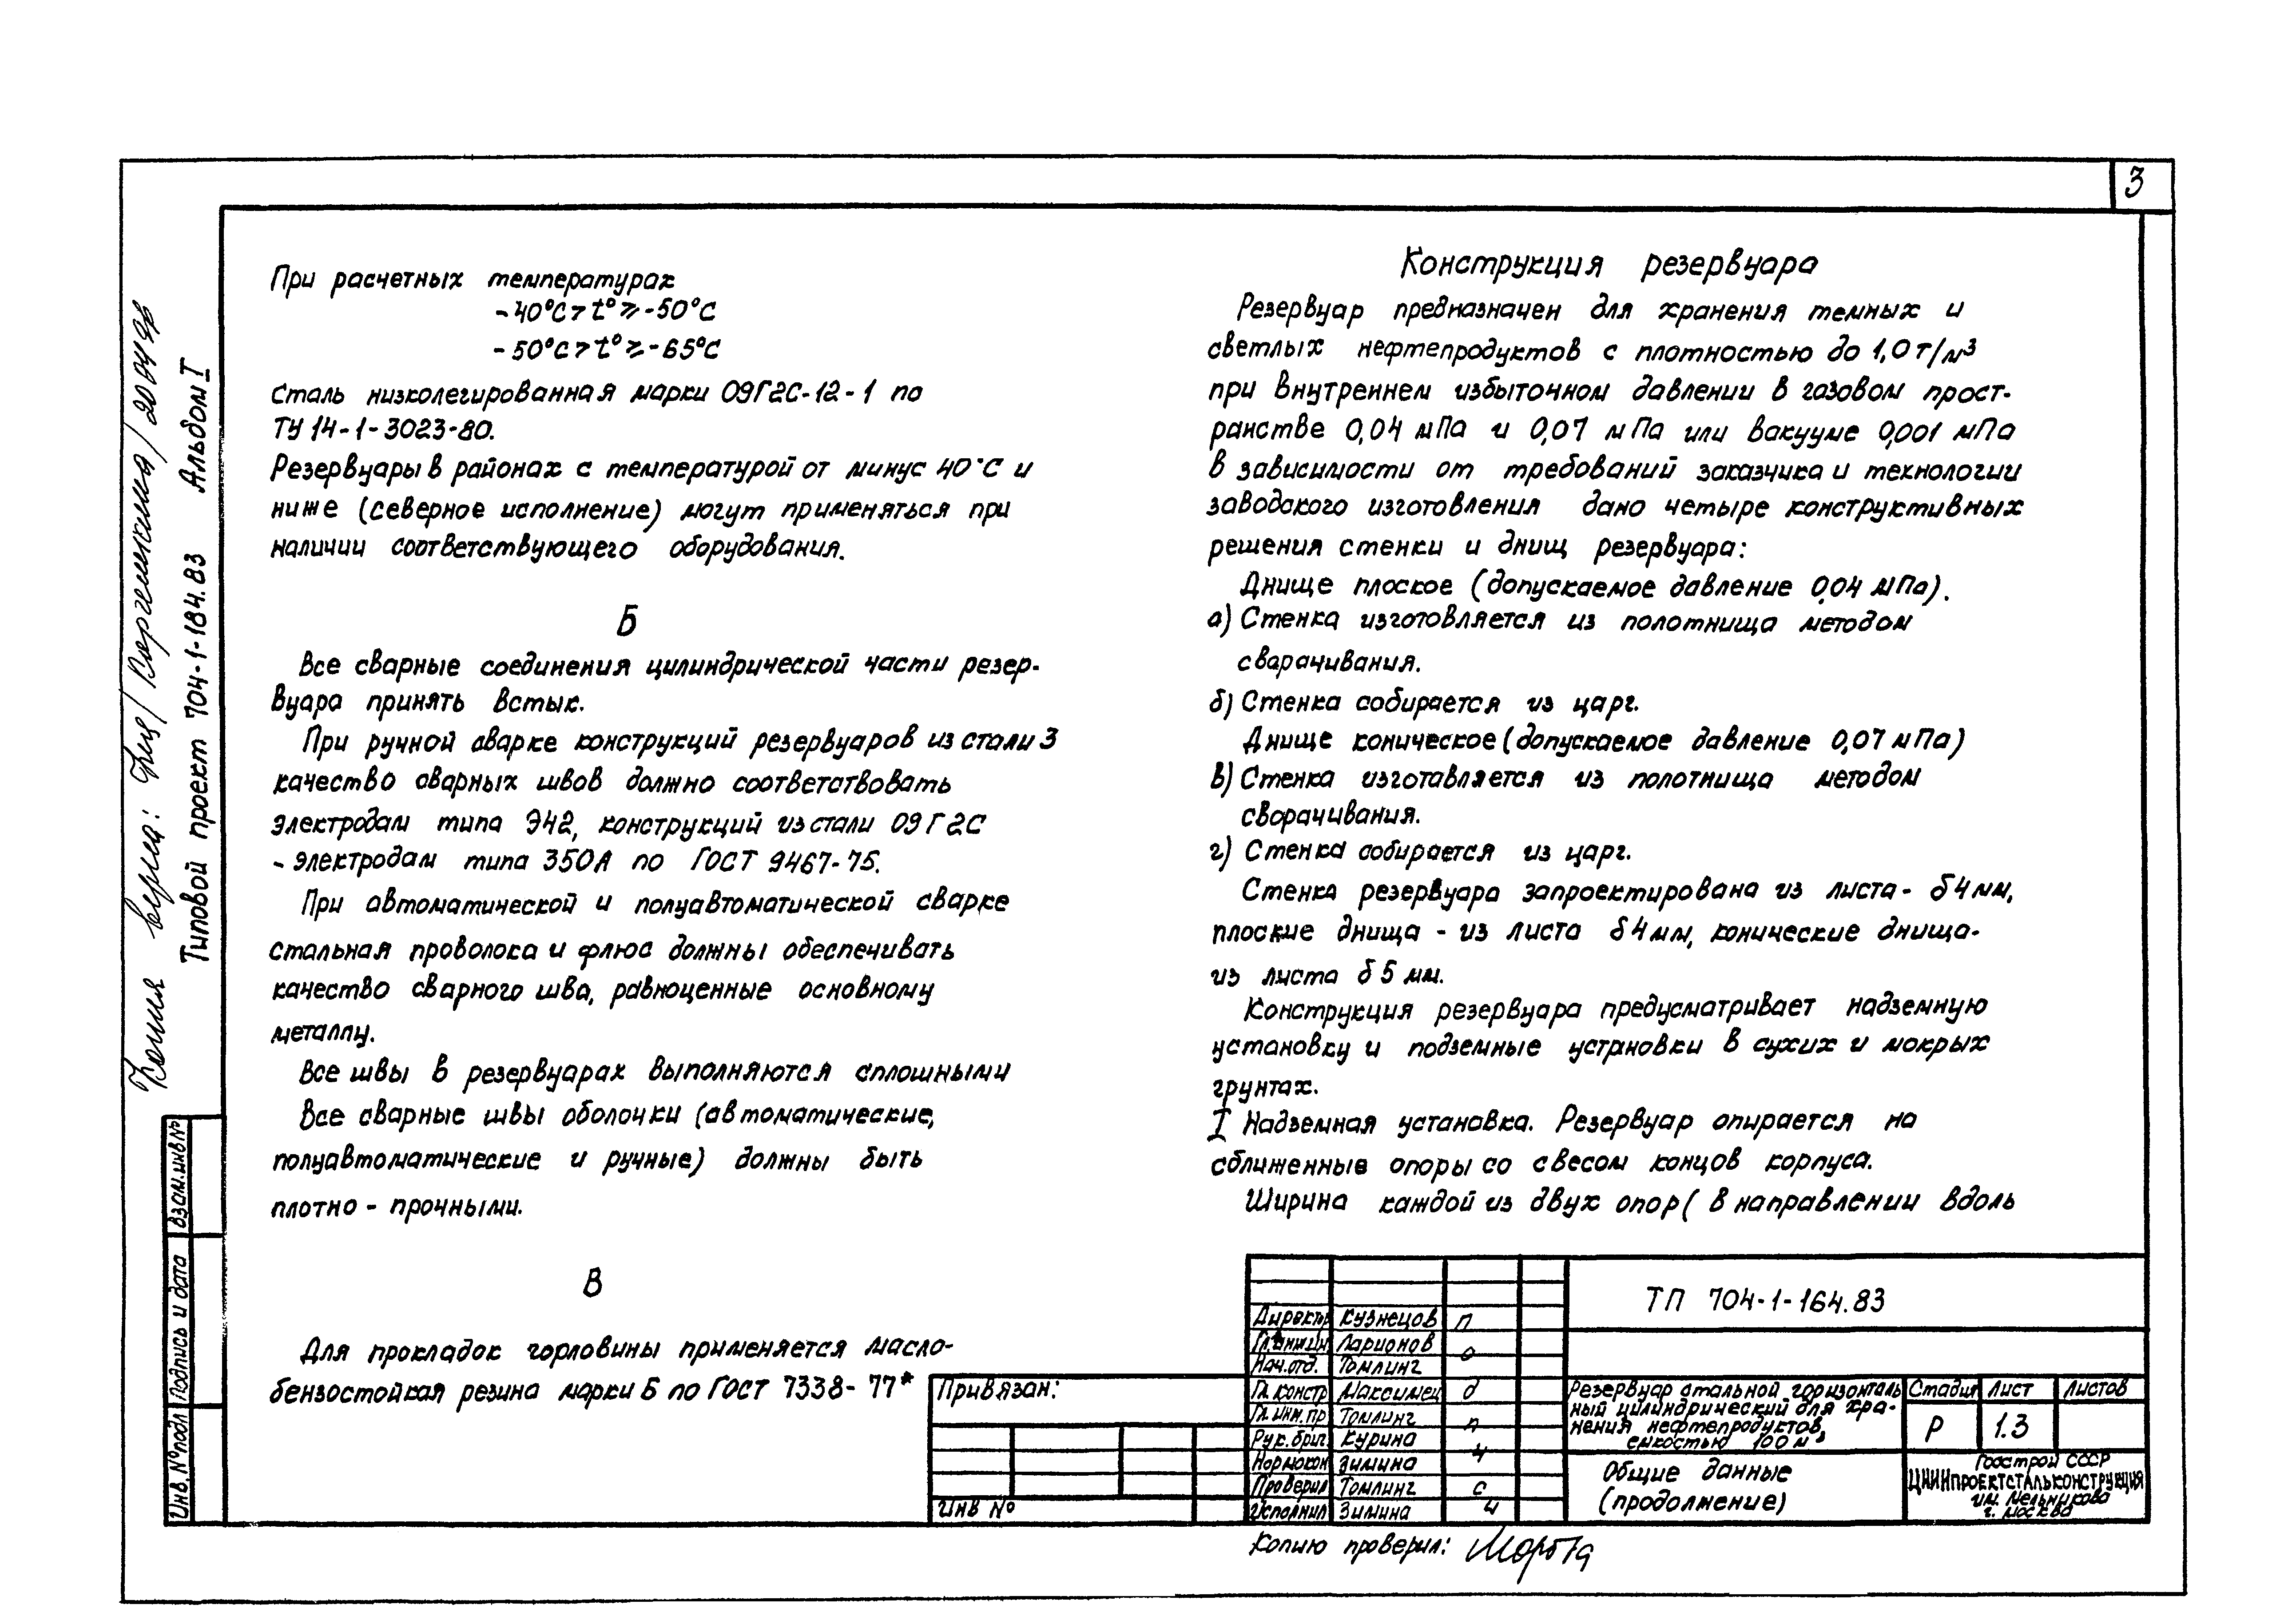 3
При расчетных температурах
-40°С > t° ≥ -50°С
-50°С > t° ≥ -65°С
Сталь низколегированная марки 09Г2С-12-1 по
ТУ 14-1-3023-80.
Резервуары в районах с температурой от минус 40°С и
ниже (северное исполнение) могут применяться при
наличии соответствующего оборудования.
Б
Все сварные соединения цилиндрической части резер-
вуара принять встык.
При ручной сварке конструкций резервуаров из стали 3
качество сварных швов должно соответствовать
электродам типа Э42, конструкций из стали 09Г2С
- электродам типа Э50А по ГОСТ 9467-75.
При автоматической и полуавтоматической сварке
стальная проволока и флюс должны обеспечивать
качество сварного шва, равноценные основному
металлу.
Все швы в резервуарах выполняются сплошными
Все сварные швы оболочки (автоматические,
полуавтоматические и ручные) должны быть
плотно - прочными.
В
Для прокладок горловины применяется масло-
бензостойкая резина марки Б по ГОСТ 7338-77*
Конструкция резервуара
Резервуар предназначен для хранения темных и
светлых нефтепродуктов с плотностью до 1,0 т/м³
при внутреннем избыточном давлении в газовом прост-
ранстве 0,04 мПа и 0,07 мПа или вакууме 0,001 мПа
в зависимости от требований заказчика и технологии
заводского изготовления дано четыре конструктивных
решения стенки и днищ резервуара:
Днище плоское (допускаемое давление 0,04 мПа).
а) Стенка изготовляется из полотнища методом
сварачивания.
б) Стенка собирается из царг.
Днище коническое (допускаемое давление 0,07 мПа)
в) Стенка изготавляется из полотнища методом
сворачивания.
г) Стенка собирается из царг.
Стенка резервуара запроектирована из листа - δ4мм,
плоские днища - из листа δ4мм, конические днища-
из листа δ5 мм.
Конструкция резервуара предусматривает надземную
установку и подземные установки в сухих и мокрых
грунтах.
I Надземная установка. Резервуар опирается на
сближенные опоры со свесом концов корпуса.
Ширина каждой из двух опор (в направлении вдоль
Типовой проект 704-1-184.83 Альбом I
Копия верна:
Взам.инв №
Подпись и дата
Инв. № подл
Привязан:
Инв №
Директр Кузнецов П
Гл.инжин Ларионов о
Нач.отд. Томлинг
Гл.констр Максимец д
Гл.инж.пр Томлинг п
Рук.бриг. Курина и
Нормокон Зимина
Проверил Томлинг с
Исполнил Зимина и
ТП 704-1-164.83
Резервуар стальной горизонталь
ный цилиндрический для хра-
нения нефтепродуктов,
емкостью 100м³
Стадия Лист Листов
Р 1.3
Общие данные
(продолжение)
Госстрой СССР
ЦНИИПРОЕКТСТАЛЬКОНСТРУКЦИЯ
им. Мельникова
г. Москва
Копию проверил: